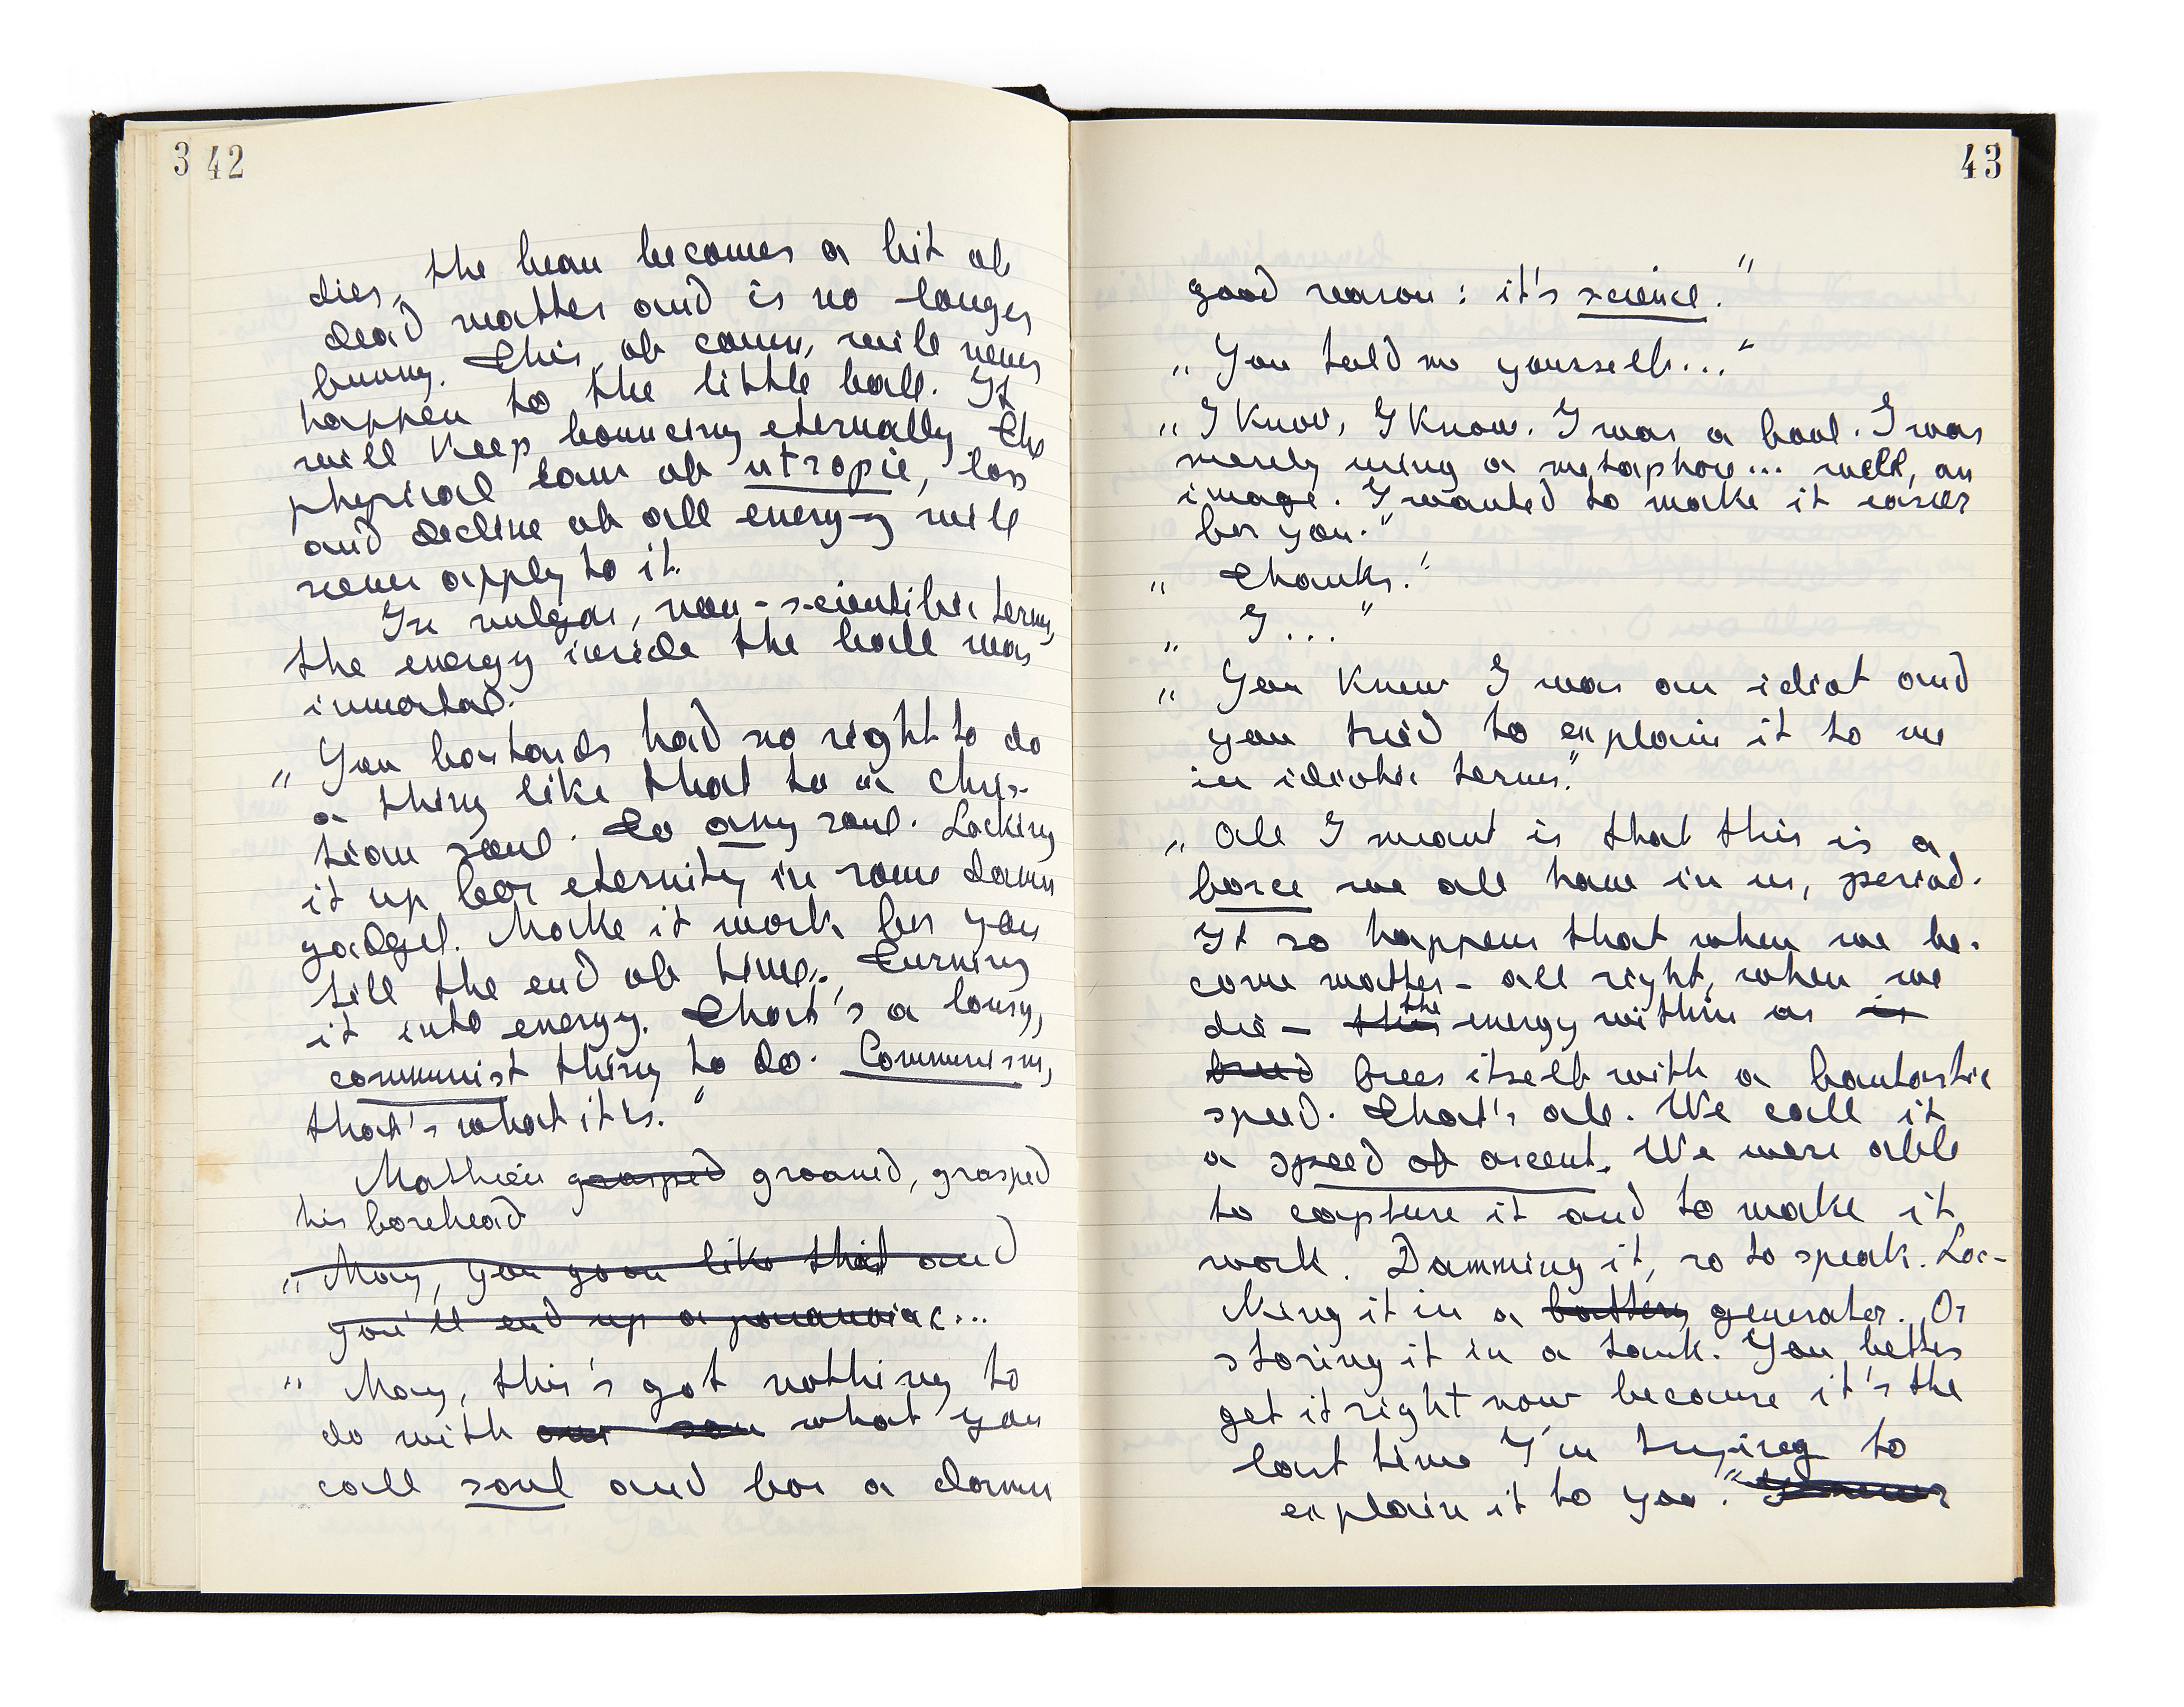 3 42
dies, the bean becomes a bit of
dead matter and is no longer
funny. This, of course, will never
happen to the little ball. It
will keep bouncing eternally. The
physical law of utropie, loss
and decline of all energy will
never apply to it.
In vulgar, non-scientific terms,
the energy inside the ball was
immortal.
„ You bastards had no right to do
a thing like that to a chris-
tian soul. To any soul. Locking
it up for eternity in some damn
gadget. Make it work for you
till the end of time. Turning
it into energy. That's a lousy,
communist thing to do. Communism,
that's what it is."
Mathieu grasped groaned, grasped
his forehead
„ May, you go on like that and
you'll end up a paranoiac...
„ May, this's got nothing to
do with our sou what you
call soul and for a damn
43
good reason: it's science."
„ You told me yourself..."
„ I know, I know. I was a fool. I was
merely using a metaphore... well, an
image. I wanted to make it easier
for you."
„ Thanks."
„ I..."
„ You knew I was an idiot and
you tried to explain it to me
in idiotic terms."
„ All I meant is that this is a
force we all have in us, period.
It so happens that when we be-
come matter - all right, when we
die - this the energy within us is
freed frees itself with a fantastic
speed. That's all. We call it
a speed of ascent. We were able
to capture it and to make it
work. Damming it, so to speak. Loc-
king it in a battery generator. Or
storing it in a tank. You better
get it right now because it's the
last time I'm trying to
explain it to you."